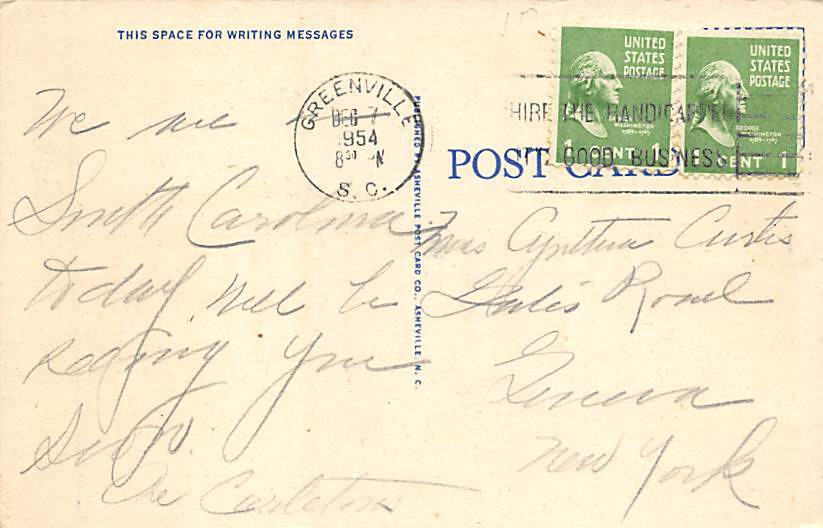 THIS SPACE FOR WRITING MESSAGES
UNITED
STATES
POSTAGE
WASHINGTON
1789-1797
1 CENT 1
UNITED
STATES
POSTAGE
GEORGE
WASHINGTON
1789-1797
CENT 1
GREENVILLE
DEC 7
1954
8 30 PM
S. C.
HIRE THE HANDICAPPED
GOOD BUSINESS
POST CARD
PUBLISHED BY ASHEVILLE POST CARD CO., ASHEVILLE, N. C.
We are in
South Carolina
today, will be
seeing you
soon.
The Carletons
Mrs Cynthia Curtis
Road
Geneva
New York